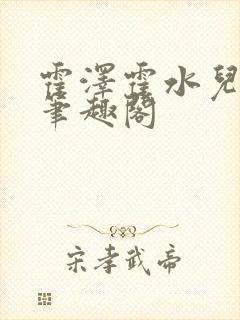 霍澤霍水兒
筆趣閣
宋孝武帝